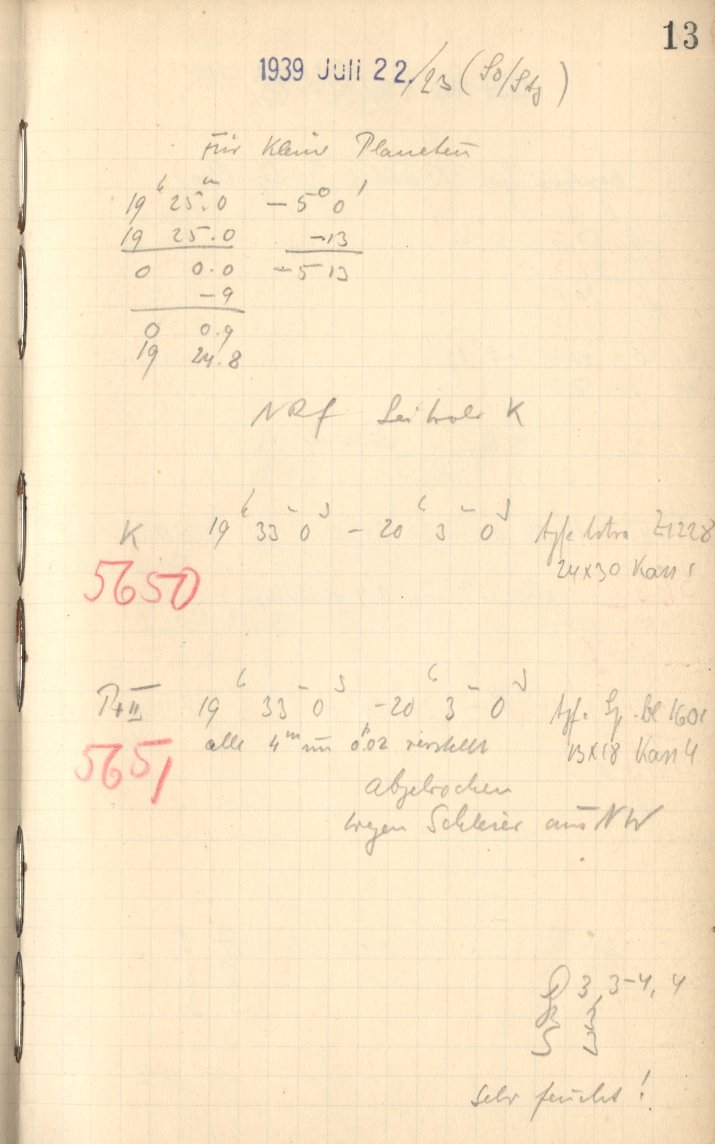 13
1939 Juli 22./23 (So/Stg)
Für Kleine Planeten
19ʰ 25ᵐ.0 – 5° 0'
19 25.0 –13
0 0.0 – 5 13
– 9
0 0.9
19 24.8
NRf K
K 19ʰ 33ᵐ 0ˢ – 20ʰ 3ᵐ 0ˢ Agfa Z1228
24x30 Kass 1
5650
19ʰ 33ᵐ 0ˢ – 20ʰ 3ᵐ 0ˢ Agfa Sp. Bl 1601
alle 4ᵐ um 0.02 verstellt 13x18 Kass 4
5651
abgebrochen
wegen Schleier aus NW
3, 3-4, 4
Sehr feucht!